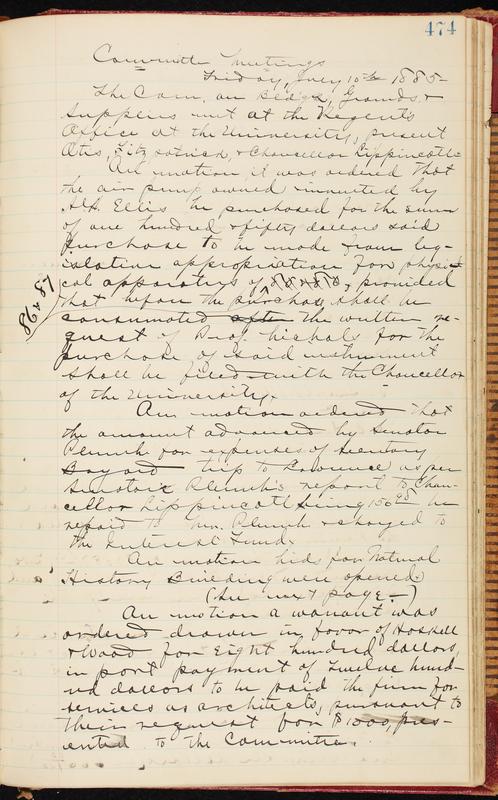 474
Committee Meetings
Friday, July 10th 1885
The Com. on Bldgs, Grounds, &
Supplies met at the Regents
Office at the University, present
Otis, Fitzpatrick, & Chancellor Lippincott.
On motion it was ordered that
the air pump owned by
Ellis be purchased for the sum
of one hundred & fifty dollars said
purchase to be made from leg-
islative appropriation for physi-
cal apparatus of provided
86 & 87
that before the purchase shall be
consummated after the written re-
quest of Prof. Nichols for the
purchase of said instrument
shall be filed with the Chancellor
of the University.
On motion ordered that
the amount advanced by Senator
Plumb for expenses of Secretary
Bayard trip to Lawrence as per
Senator Plumb's report to Chan-
cellor Lippincott being 156 be
repaid to Mr. Plumb & charged to
the Interest Fund.
On motion bids for Natural
History Building were opened
(See next page.)
On motion a warrant was
ordered drawn in favor of Haskell
& Wood for Eight hundred dollars,
in part payment of Twelve hund-
red dollars to be paid the firm for
services as architects, pursuant to
their request for $1000, pres-
ented to the Committee.